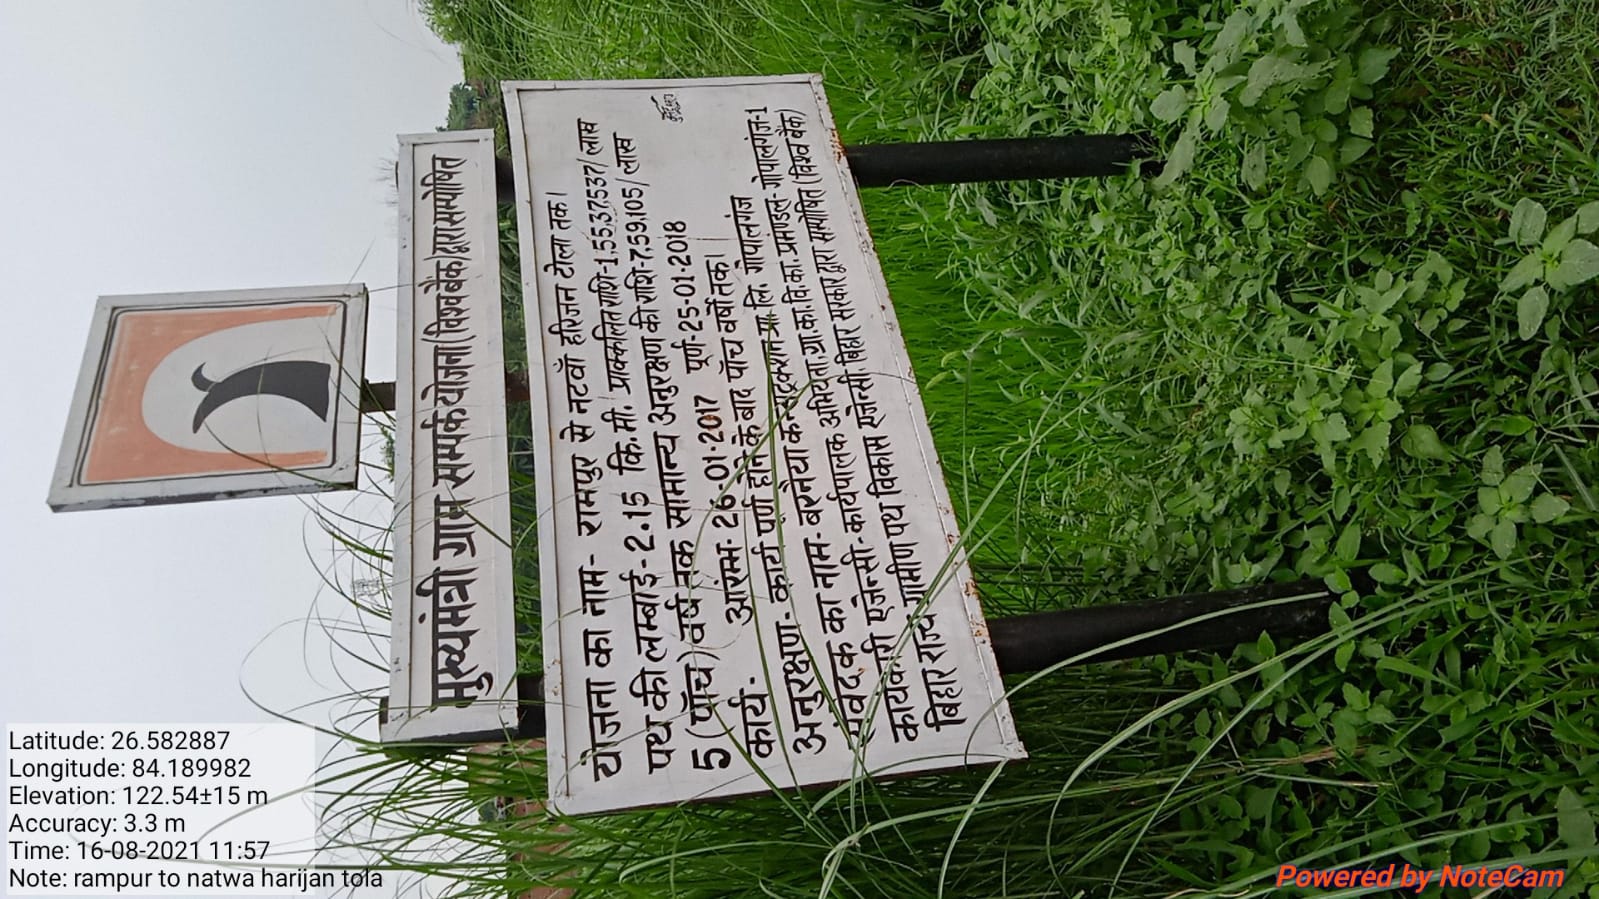 मुख्यमंत्री ग्राम सम्पर्क योजना (विश्व बैंक) द्वारा सम्पोषित
योजना का नाम- रामपुर से नटवाँ हरिजन टोला तक।
पथ की लम्बाई- 2.15 कि.मी. प्राक्कलित राशि-1,55,37,537/ लाख
5 (पाँच) वर्ष तक सामान्य अनुरक्षण की राशि-7,59,105/ लाख
कार्य. आरंभ- 26-01-2017 पूर्ण-25-01-2018
अनुरक्षण- कार्य पूर्ण होने के बाद पाँच वर्षो तक।
संवेदक का नाम- बरनैया कन्स्ट्रक्शन प्रा. लि. गोपालगंज
कार्यकारी एजेन्सी- कार्यपालक अभियंता, ग्रा.का.वि.का. प्रमण्डल- गोपालगंज-1
बिहार राज्य ग्रामीण पथ विकास एजेन्सी, बिहार सरकार द्वारा सम्पोषित (विश्व बैंक)
Latitude: 26.582887
Longitude: 84.189982
Elevation: 122.54±15 m
Accuracy: 3.3 m
Time: 16-08-2021 11:57
Note: rampur to natwa harijan tola
Powered by NoteCam